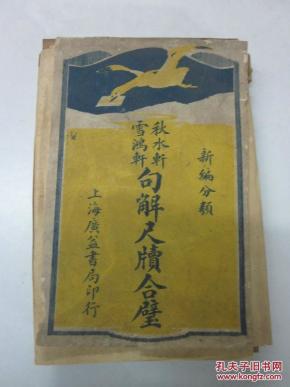 新編分類
秋水軒
雪鴻軒
句解尺牘合璧
上海廣益書局印行
孔夫子旧书网